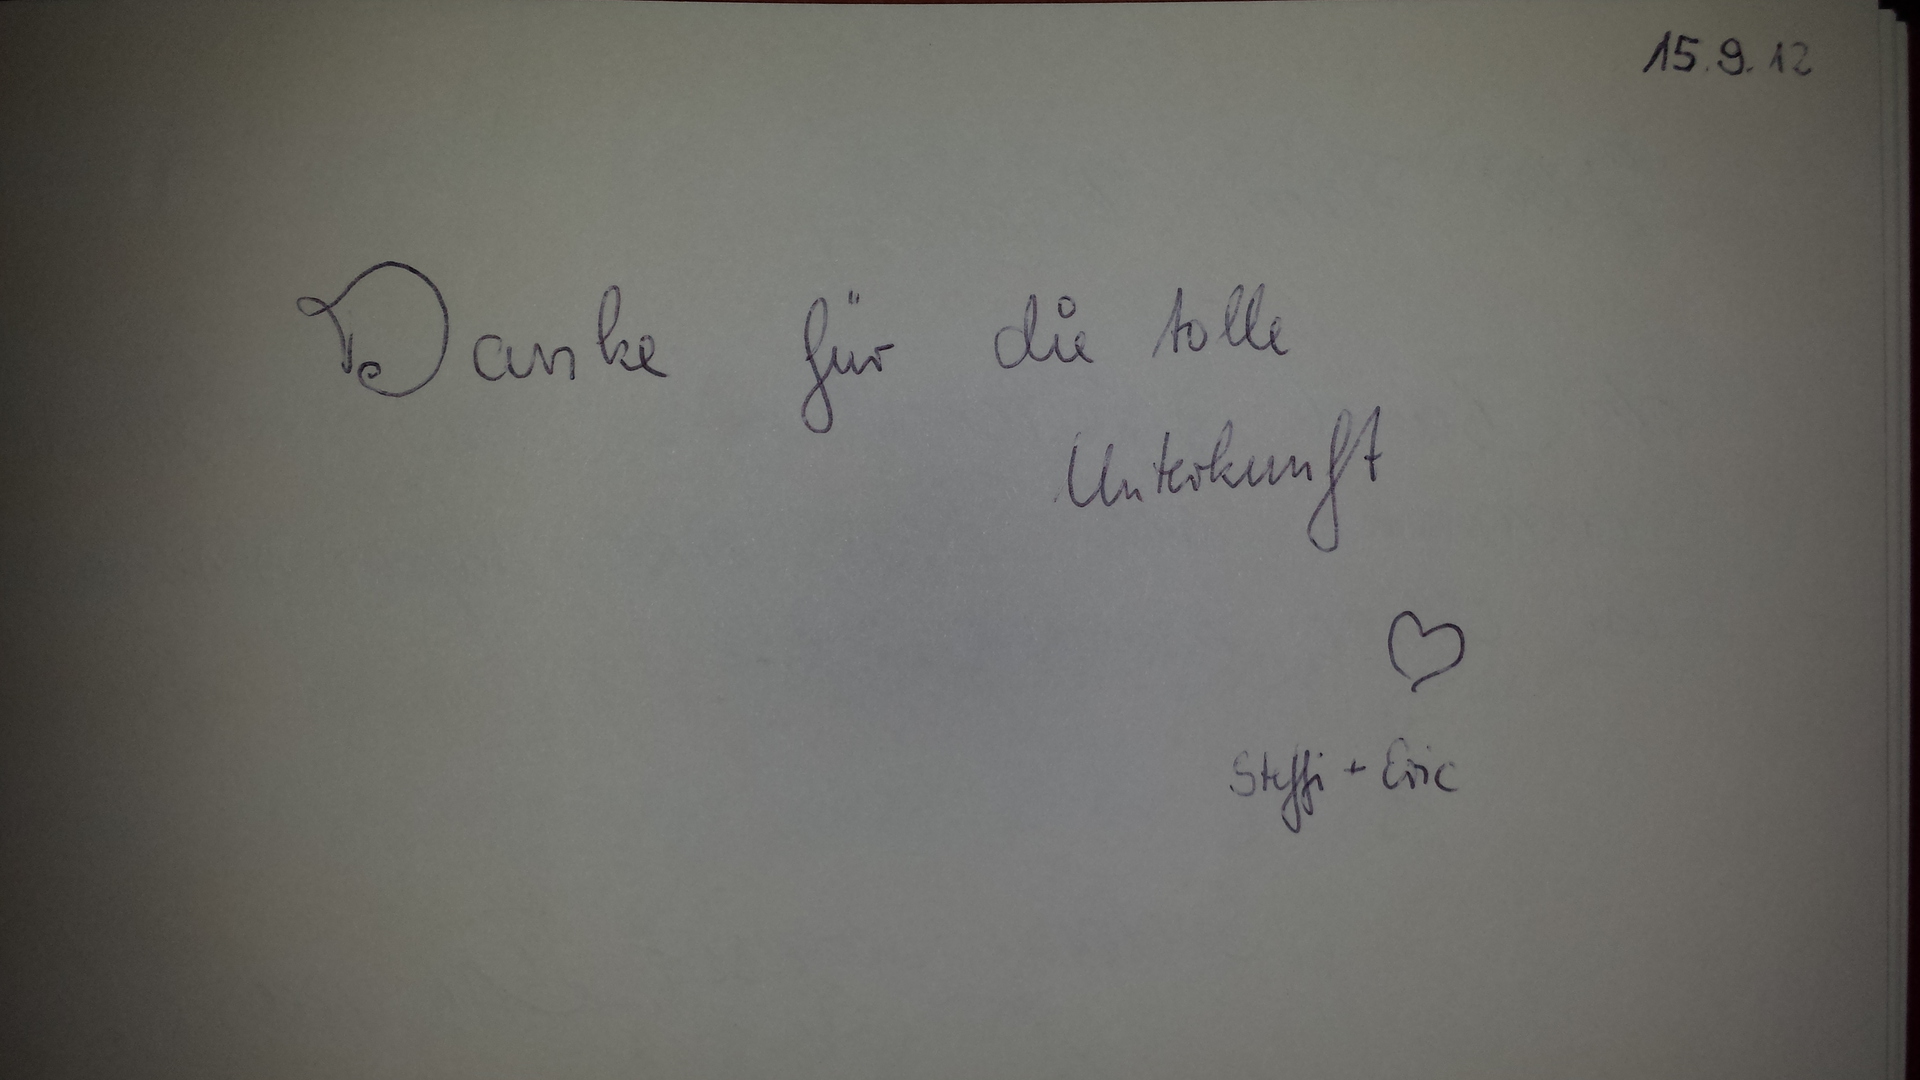 15.9.12
Danke für die tolle
Unterkunft
♡
Steffi + Eric